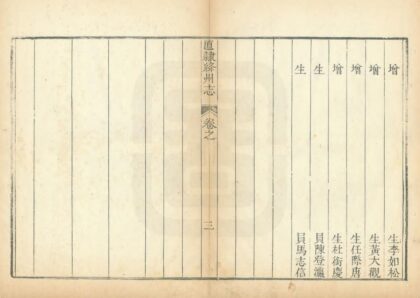 增　生李如松
增　生黃大觀
增　生任際唐
增　生杜銜慶
生　員陳登瀛
生　員馬志信
直隸絳州志　卷之　三